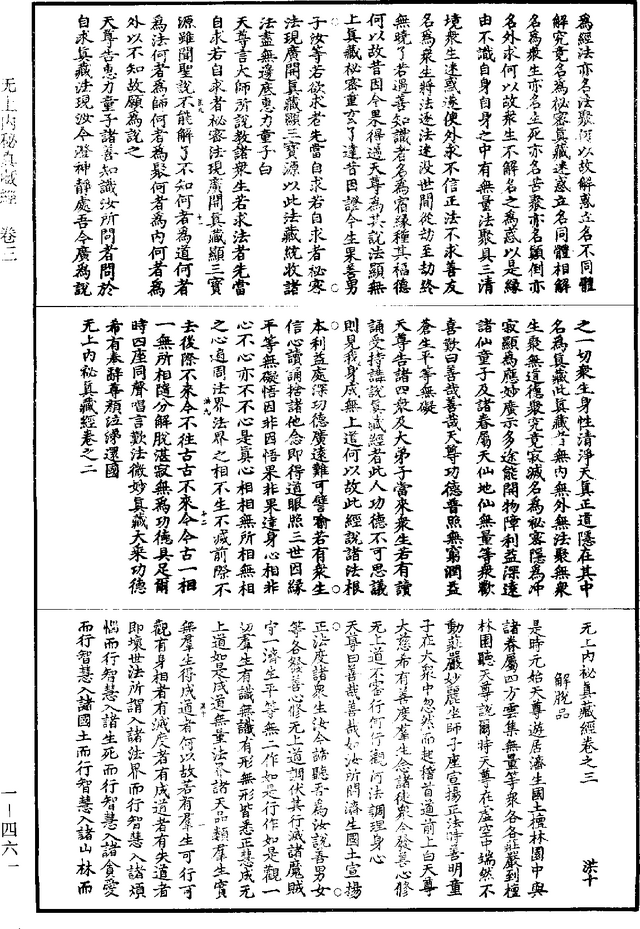 爲經法亦名法聚何以故解惑立名不同體
解究竟名爲秘密真藏迷惑立名同體相解
名爲衆生亦名生死亦名苦聚亦名顛倒亦
名外求何以故衆生不解名之爲惑以是緣
由不識自身自身之中有無量法聚具三清
境衆生迷惑遂使外求不信正法不求善友
名爲衆生將法逐法違没世間從劫至劫終
無曉了若遇善知識者名爲宿緣種其福德
何以故昔因今果得遇天尊爲其說法顯無
上真藏秘密重玄了達昔因證今生果善男
子汝等若欲求者先當自求若自求者秘密
法現廣開真藏顯三寶源以此法藏統收諸
法盡無邊底惠力童子白
天尊言大師所說教諸衆生若求法者先當
自求若自求者秘密法現廣開真藏顯三寶
源雖聞聖說不能解了不知何者爲道何者
爲法何者爲師何者爲聚何者爲内何者爲
外以不知故願爲說之
天尊告惠力童子諸善知識汝所問者問於
自求真藏法現汝今澄神靜處吾今廣爲說
之一切衆生身性清淨天真正道隱在其中
名爲真藏此真藏者無内無外無法聚無衆
生聚無道德聚究竟寂滅名爲秘密隱爲沖
寂顯爲應妙廣示多途能開物障利益深遠
諸仙童子及諸眷屬天仙地仙無量等衆歡
喜歎曰善哉善哉天尊功德普照無窮潤益
蒼生平等無礙
天尊告諸四衆及大弟子當來衆生若有讀
誦受持講說真藏經者此人功德不可思議
則見我身成無上道何以故此經說諸法根
本利益處深功德廣遠難可譬喻若有衆生
信心讀誦捨諸他念即得道眼照三世因緣
平等無礙悟因非因悟果非果達身心相非
心不心亦不不心是真心相相無所相無相
之心遍周法界法界之相不生不滅前際不
去後際不來今不往古古不來今今古一相
一無所相隨分解脫湛寂無爲功德具足爾
時四座同聲唱言歎法微妙真藏大乘功德
希有奉辭尊顏泣涕還國
无上内秘真藏經卷之二
无上内秘真藏經卷之三
解脫品
是時元始天尊遊居濟生國土檀林園中與
諸眷屬四方雲集無量等衆各各莊嚴到檀
林園聽天尊說爾時天尊在虛空中端然不
動莊嚴妙麗坐師子座宣揚正法時善明童
子在大衆中忽然而起稽首道前上白天尊
大慈希有善度羣生念諸徒衆今發其心修
无上道不審行何行觀何法調理身心
天尊曰善哉善哉如汝所問濟生國土宣揚
正法度諸衆生汝今諦聽吾爲汝說善男女
等各發善心修无上道調伏其行滅諸魔賊
守一濟生平等無二作如是行作如是觀一
切羣生有識無識有形無形皆悉正慧成无
上道如是成道無量法界諸天品類羣生實
無羣生得成道者何以故若有羣生可行可
觀有身相者有滅度者有成道者有失道者
即壞世法所謂入諸法界而行智慧入諸煩
惱而行智慧入諸生死而行智慧入諸貪愛
而行智慧入諸國土而行智慧入諸山林而
洪十
无上内秘真藏經 卷三
一—四六一